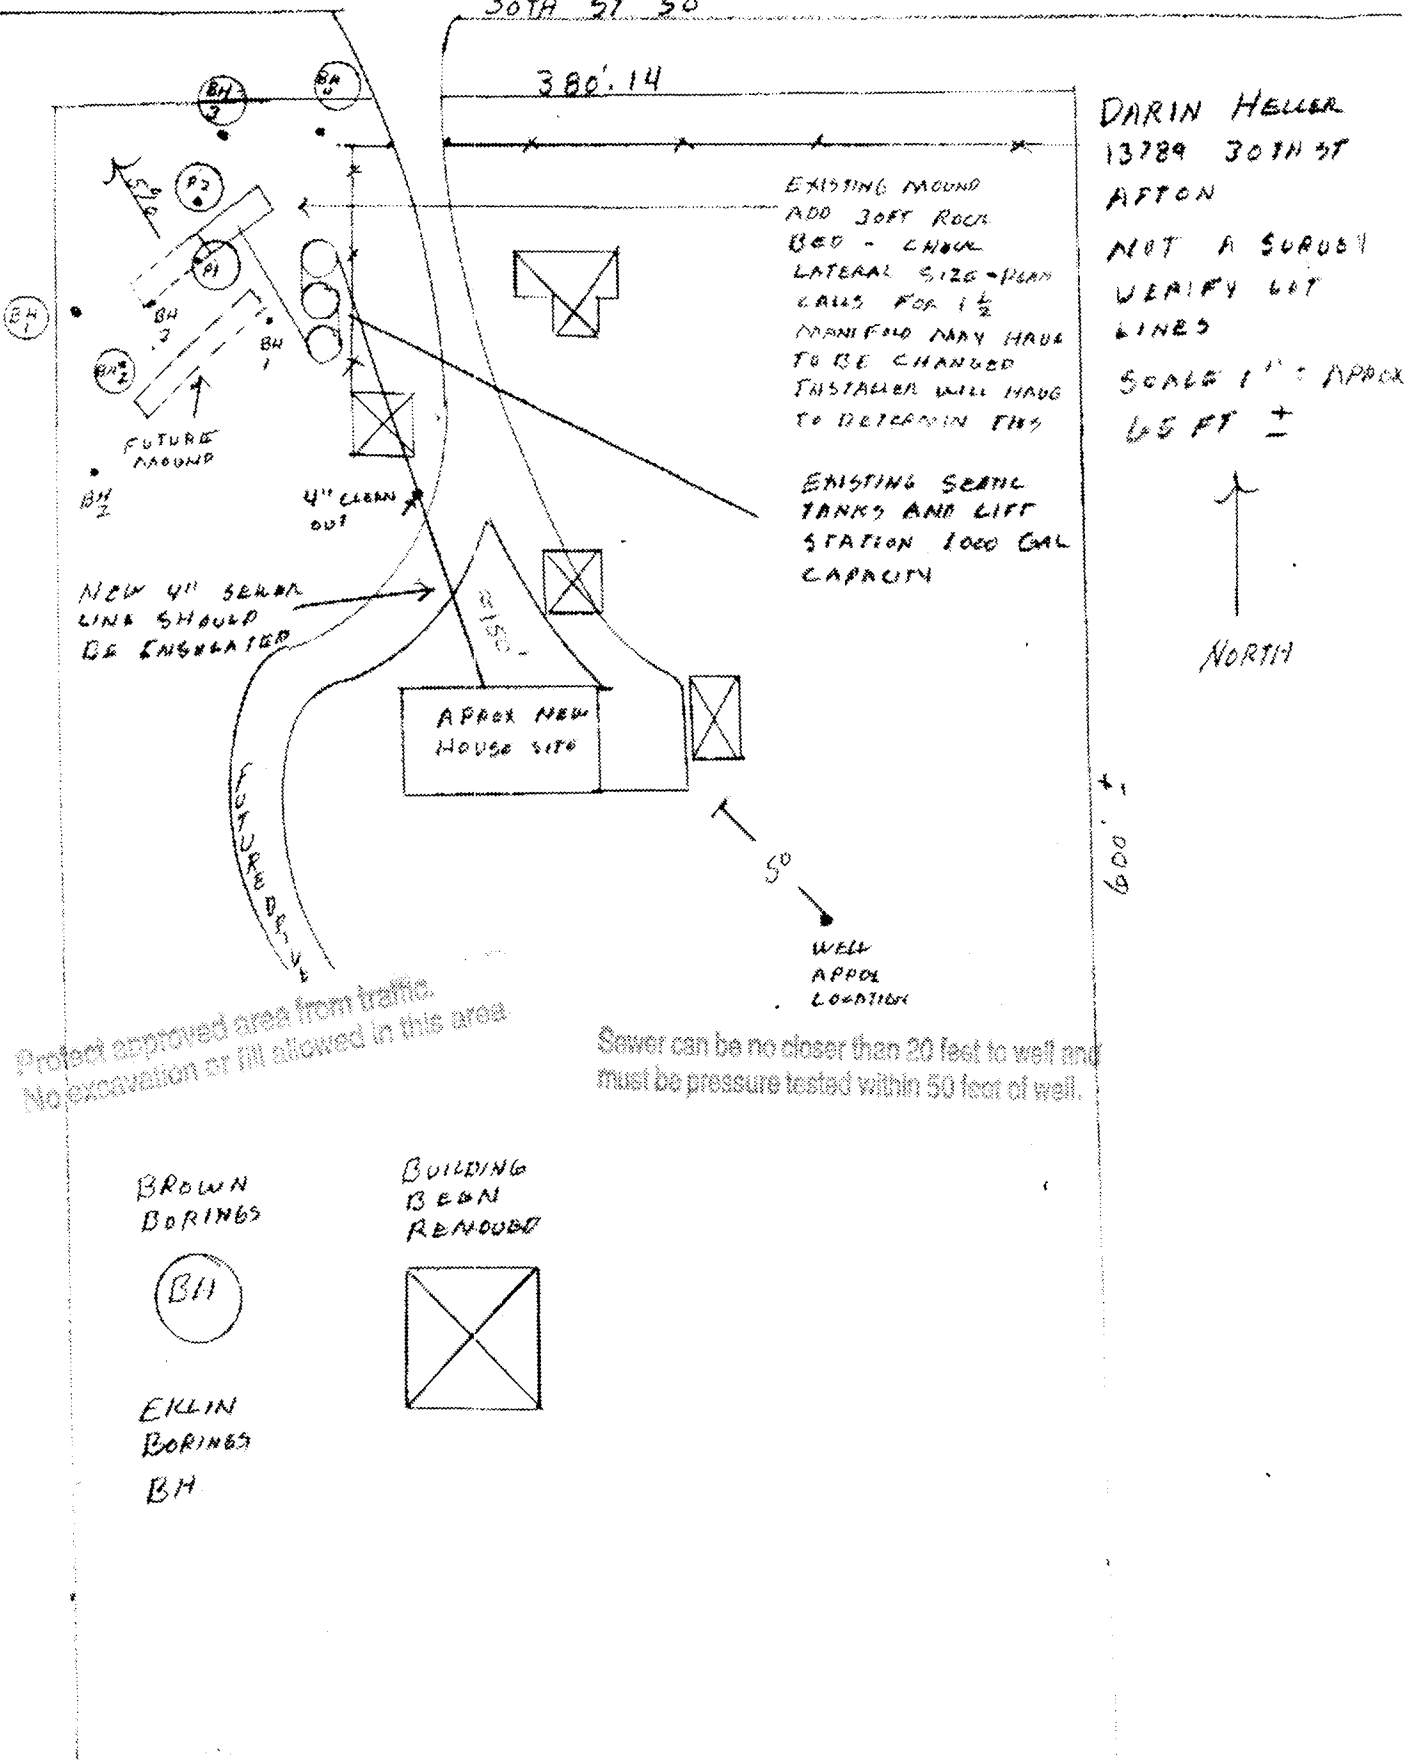 30TH ST SO
380'.14
BH
3
BH
4
DARIN HELLER
13789 30TH ST
AFTON
NOT A SURVEY
VERIFY LOT
LINES
SCALE 1" = APROX
65 FT ±
NORTH
P2
P1
BH
1
BH
2
BH
3
BH
1
BH
2
EXISTING MOUND
ADD 30FT ROCK
BED - CHECK
LATERAL SIZE - PLAN
CALLS FOR 1 1/2
MANIFOLD MAY HAVE
TO BE CHANGED
INSTALLER WILL HAVE
TO DETERMIN THIS
FUTURE
MOUND
4" CLEAN
OUT
EXISTING SEPTIC
TANKS AND LIFT
STATION 1000 GAL
CAPACITY
NEW 4" SEWER
LINE SHOULD
BE INSULATED
≈150'
APROX NEW
HOUSE SITE
FUTURE DRIVE
50
600' ±
WELL
APPOX
LOCATION
Protect approved area from traffic.
No excavation or fill allowed in this area
Sewer can be no closer than 20 feet to well and
must be pressure tested within 50 feet of well.
BROWN
BORINGS
BH
BUILDING
BEEN
REMOVED
EKLIN
BORINGS
BH